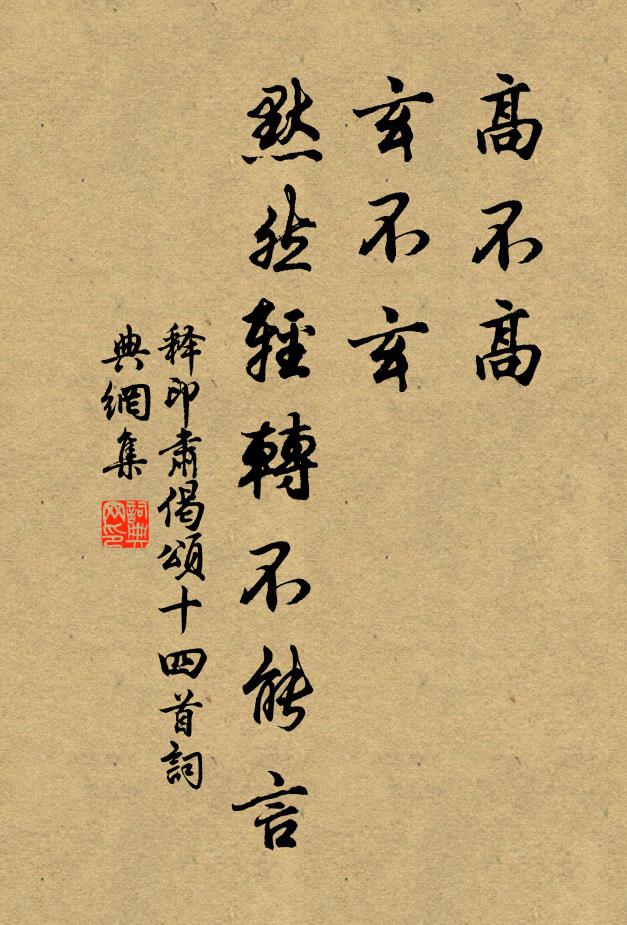 高不高
玄不玄
默然輕轉不能言
释印肃偈頌十四首詞
典網集
詞典
网印